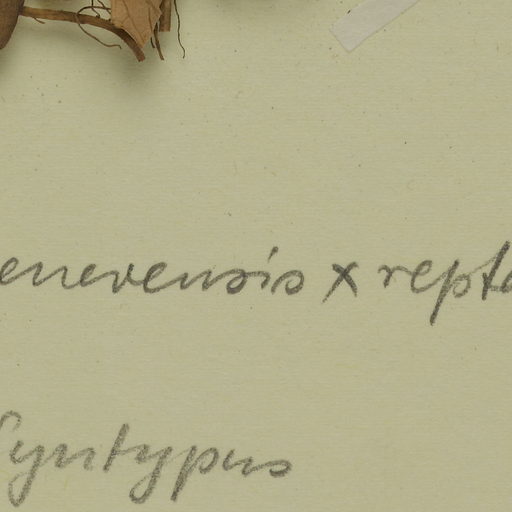 enevensis x repta
Syntypus